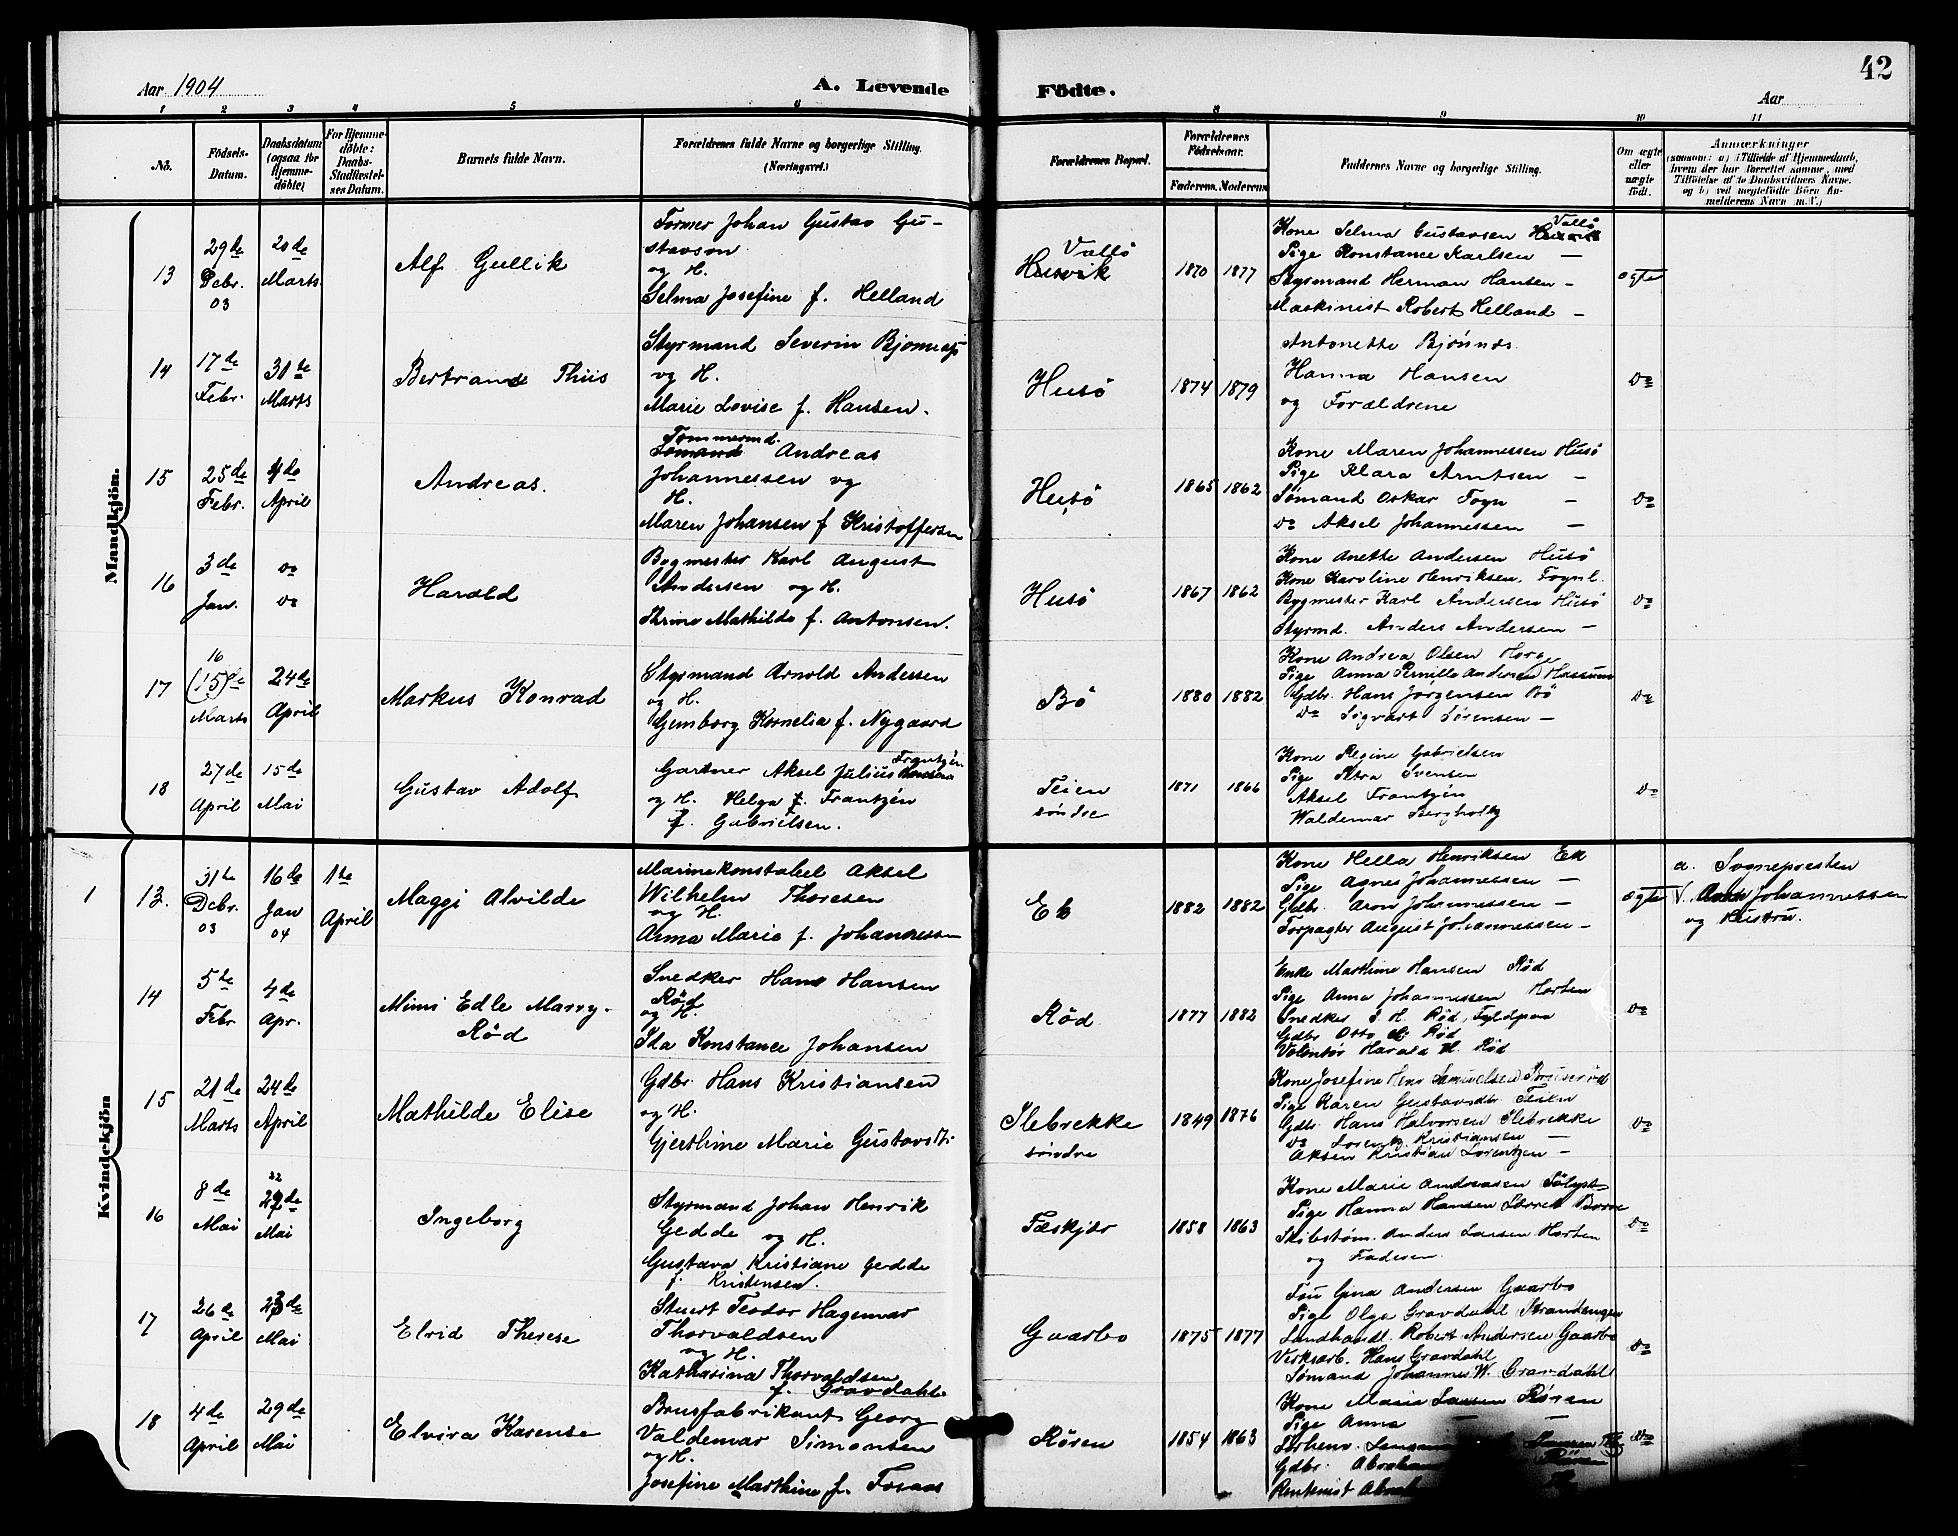 Aar 1904
A. Levende
Födte.
Aar
42
1 2 3 4 5 6 8 9 10 11
No.
Födsels-
Datum.
Daabsdatum
(ogsaa for
Hjemme-
döbte)
For Hjemme-
döbte:
Daabs-
Stadfæstel-
ses Datum.
Barnets fulde Navn.
Forældrenes fulde Navne og borgerlige Stilling.
(Næringsvei.)
Forældrenes Bopæl.
Forældrenes
Födselsaar.
Faderens. Moderens.
Faddernes Navne og borgerlige Stilling.
Om ægte
eller
uægte
født.
Anmærkninger
(saasom: a) i Tilfælde af Hjemmedaab,
hvem der har forrettet samme, med
Tilföielse af to Daabsvidners Navne.
og b) ved uægtefödte Börn An-
melderens Navn m.V.)
Mandkjön.
13
29de
Debr.
03
20de
Marts
Alf Gullik
Former Johan Gustav Gu-
stavson
og H.
Selma Josefine f. Helland
Vallö
Husvik
1870
1877
Kone Selma Gustavsen Vallö
Pige Konstance Karlsen —
Styrmand Herman Hansen —
Maskinist Robert Helland —
ægte
14
17de
Febr.
31te
Marts
Bertrand Thiis
Styrmand Severin Bjönnes
og H.
Marie Lovise f. Hansen.
Husö
1874
1879
Antonette Bjönnes
Hanna Hansen
og Forældrene
do
15
25de
Febr.
4de
April
Andreas.
Tømmermd.
Sömand Andreas
Johannessen og
H.
Maren Johansen f Kristoffersen
Husö
1865
1862
Kone Maren Johannessen Husö
Pige Klara Arntsen —
Sømand Oskar Fogn —
do Aksel Johannessen —
do
16
3de
Jan.
do
do
Harald
Bygmester Karl August
Andersen og H.
Thrine Mathilde f. Antonsen.
Husö
1867
1862
Kone Anette Andersen Husö
Kone Karoline Henriksen, Fognl.
Bygmester Karl Andersen Husö
Styrmd. Anders Andersen —
do
17
16
(15)de
Marts
24de
April
Markus Konrad
Styrmand Arnold Andersen
og H.
Gunborg Kornelia f. Nygaard
Bö
1880
1882
Kone Andrea Olsen
Pige Anna Pernille Andersen Hassum
Gdbr. Hans Jørgensen Bö
do Sigvart Sørensen —
do
18
27de
April
15de
Mai
Gustav Adolf
Gartner Aksel Julius Frantzén
og H. Helga f. Frantzén
f. Gabrielsen.
Teien
søndre
1871
1866
Kone Regine Gabrielsen
Pige Petra Svensen
Aksel Frantzén
Waldemar
do
Kvindekjön
1
13.
31te
Debr.
03
16de
Jan
04
1te
April
Maggi Alvilde
Marinekonstabel Aksel
Wilhelm Thoresen
og H.
Anna Marie f. Johannessen
Ek
1882
1882
Kone Hella Henriksen Ek
Pige Agnes Johannessen —
Gdbr. Aron Johannessen —
Forpagter August Johannessen —
ægte
a. Sognepresten
V. Aron Johannessen
og Hustru.
14
5te
Febr
4de
Apr.
Mimi Edle Marry.
Rød
Snedker Hans Hansen
Rød
og H.
Ida Konstance Johansen
Rød
1877
1882
Enke Marthine Hansen Rød
Pige Anna Johannessen Horten
Snedker S. H. Rød,
Gdbr Otto Rød
Volontør Harald H. Rød
do
15
21de
Marts
24de
April
Mathilde Elise
Gdbr. Hans Kristiansen
og H.
Gjerthine Marie Gustavsdtr
Slebrekke
søndre
1849
1876
Kone Josefine Samuelsen
Pige Karen Gustavsdtr. Teien
Gdbr. Hans Halvorsen Slebrekke
do Lorentz Kristiansen —
Aksen Kristian Lorentzen —
do
16
8de
Mai
22
29de
Mai
Ingeborg
Styrmand Johan Henrik
Gedde og H.
Gustava Kristiane Gedde
f. Kristensen.
Fæskjær
1858
1863
Kone Marie Andresen Sölyst
Pige Hanna Hansen Borre
Skibstøm. Anders Larsen Horten
og Faderen.
do
17
26de
April
23de
Mai
Elvid Therese
Stuert Teodor Hagemar
Thorvaldsen
og H.
Katharina Thorvaldsen
f. Gravdahl.
Gaarbo
1875
1877
Gina Andersen Gaarbo
Pige Olga Gravdahl Strandengen
Landhandl. Robert Andersen Gaarbo
Verksarb. Hans Gravdahl
Sømand Johannes W. Gravdahl
do
18
4de
April
29de
Mai
Elvira Karense
Brusfabrikant Georg
Valdemar Simonsen
og H.
Josefine Marthine f. Foraas
Røren
1854
1863
Kone Maria Larsen Røren
Pige Anna — —
Gdbr. Abraham
Rentenist
do